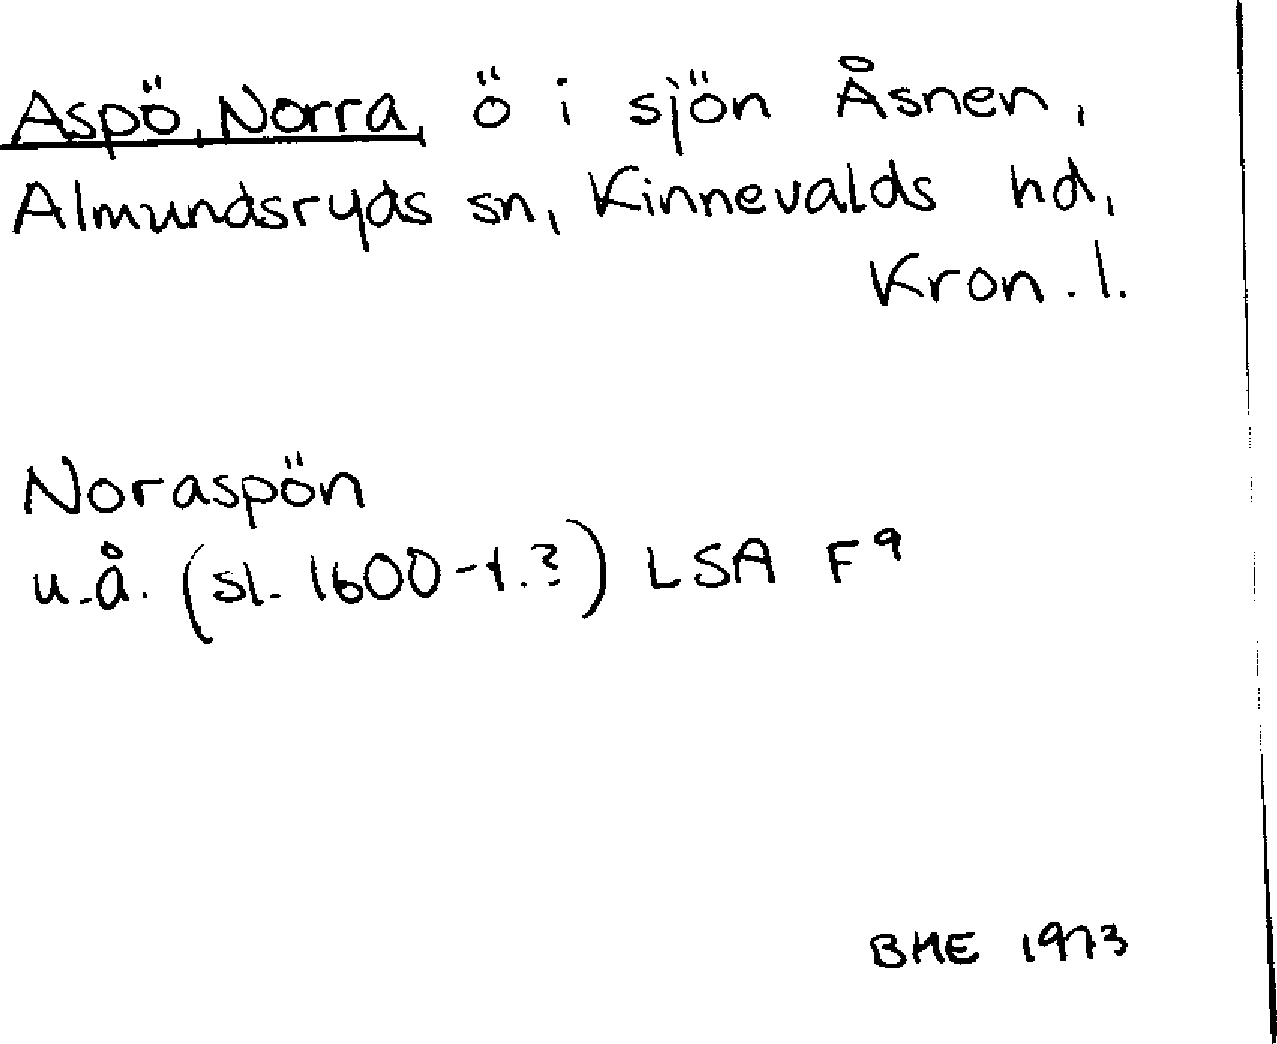 Aspö, Norra, ö i sjön Åsnen,
Almundsryds sn, Kinnevalds hd,
Kron. l.
Noraspön
u.å. (sl. 1600-t.?) LSA F⁹
BME 1973